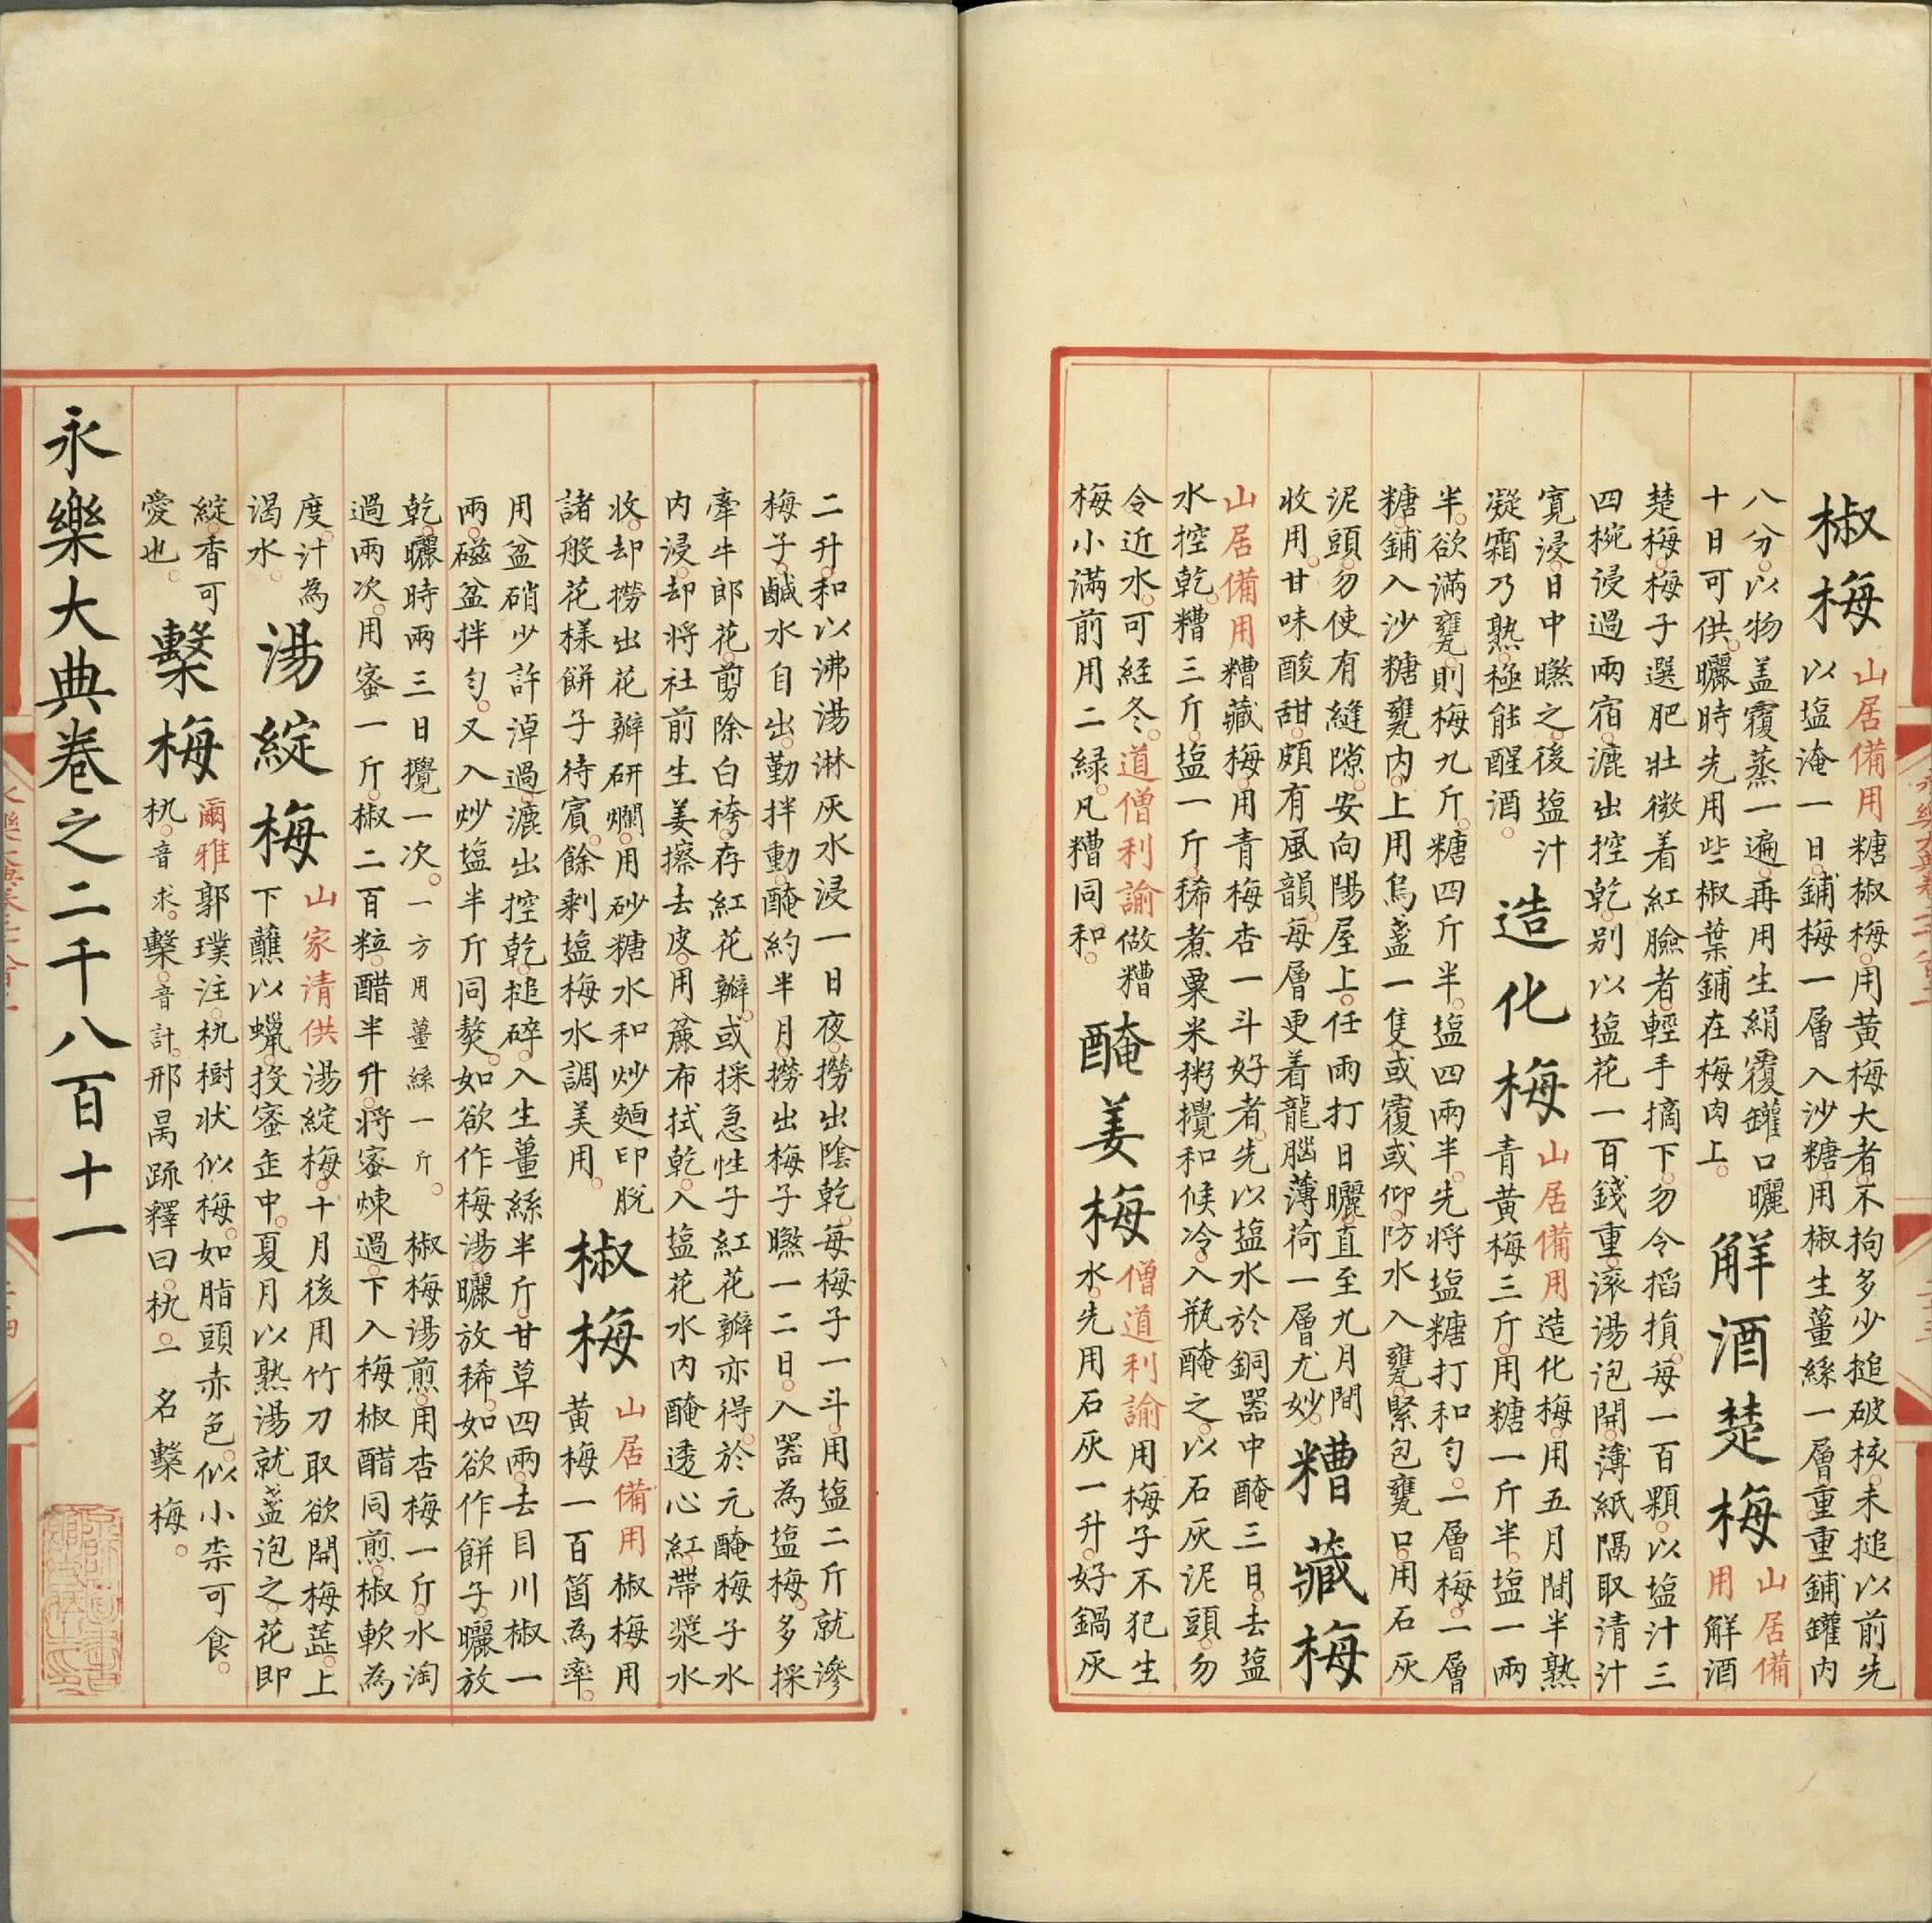 椒梅
山居備用糖椒梅。用黃梅大者。不拘多少搥破核。未搥以前先
以塩淹一日。鋪梅一層入沙糖用椒生薑絲一層。重重鋪罐内
八分。以物盖覆蒸一遍。再用生絹覆罐口曬
十日可供。曬時先用些椒葉鋪在梅肉上。
解酒楚梅
山居備
用解酒
楚梅。梅子選肥壯微着紅臉者。輕手摘下。勿令搯損。每一百顆。以塩汁三
四椀浸過兩宿。漉出控乾。别以塩花一百錢重。滚湯泡開。薄紙隔取清汁
寛浸。日中曝之。後塩汁
凝霜乃熟。極能醒酒。
造化梅
山居備用造化梅。用五月間半熟
青黃梅三斤。用糖一斤半。塩一兩
半。欲滿甕。則梅九斤。糖四斤半。塩四兩半。先将塩糖打和匀。一層梅。一層
糖。鋪入沙糖甕内。上用烏盞一隻。或覆或仰。防水入甕。緊包甕口。用石灰
泥頭。勿使有縫隙。安向陽屋上。任雨打日曬。直至九月間
收用。甘味酸甜。頗有風韻。每層更着龍腦薄荷一層尤妙。
糟藏梅
山居備用糟藏梅。用青梅杏一斗好者。先以塩水於銅器中醃三日。去塩
水控乾。糟三斤。塩一斤。稀煮粟米粥攪和候冷。入瓶醃之。以石灰泥頭。勿
令近水。可経冬。道僧利諭做糟
梅小滿前用二緑。凡糟同和。
醃姜梅
僧道利諭用梅子不犯生
水。先用石灰一升。好鍋灰
二升。和以沸湯淋灰水浸一日夜。撈出陰乾。每梅子一斗。用塩二斤就滲
梅子。鹹水自出。勤拌動。醃約半月。撈出梅子曝一二日。入器為塩梅。多採
牽牛郎花。剪除白袴。存紅花瓣。或採急性子紅花瓣亦得。於元醃梅子水
内浸。却将社前生姜擦去皮。用麄布拭乾。入塩花水内醃透心紅。帶漿水
收。却撈出花瓣研爛。用砂糖水和炒麵印脫
諸般花樣餅子待賓。餘剩塩梅水調羙用。
椒梅
山居備用椒梅。用
黃梅一百箇為率。
用盆硝少許淖過。漉出控乾。搥碎。入生薑絲半斤。甘草四兩。去目川椒一
兩。磁盆拌匀。又入炒塩半斤。同㷅。如欲作梅湯。曬放稀。如欲作餅子。曬放
乾。曬時兩三日攪一次。一方用薑絲一斤。椒梅湯煎。用杏梅一斤。水淘
過兩次。用蜜一斤。椒二百粒。醋半升。将蜜煉過。下入梅椒醋同煎。椒軟為
度。汁為
渴水。
湯綻梅
山家清供湯綻梅。十月後用竹刀取欲開梅蕋。上
下蘸以蠟。投蜜缶中。夏月以熟湯就盞泡之。花即
綻。香可
愛也。
檕梅
爾雅郭璞注。朹樹状似梅。如脂頭赤色。似小柰可食。
朹。音求。檕。音計。邢昺䟽釋曰。朹。一名檕梅。
永樂大典卷之二千八百十一